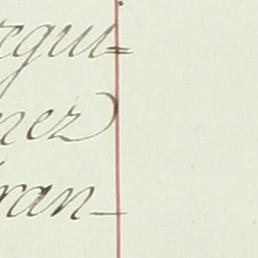 regui=
nez
ran-